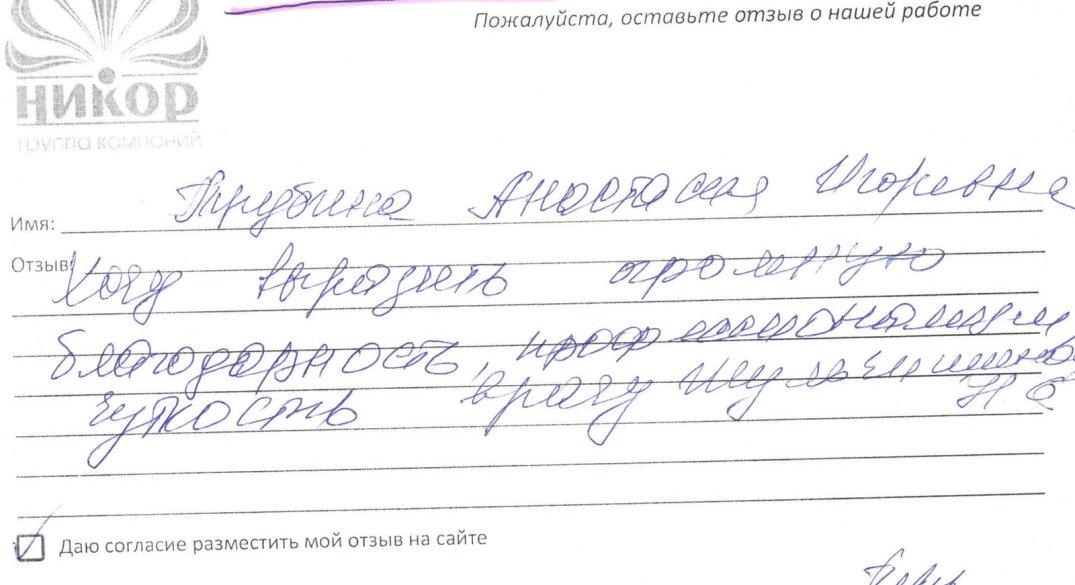 Пожалуйста, оставьте отзыв о нашей работе
НИКОР
группа компаний
Имя: Трубина Анастасия Игоревна
Отзыв: Хочу выразить огромную
благодарность, профессионализм,
чуткость врачу
Н.С
Даю согласие разместить мой отзыв на сайте